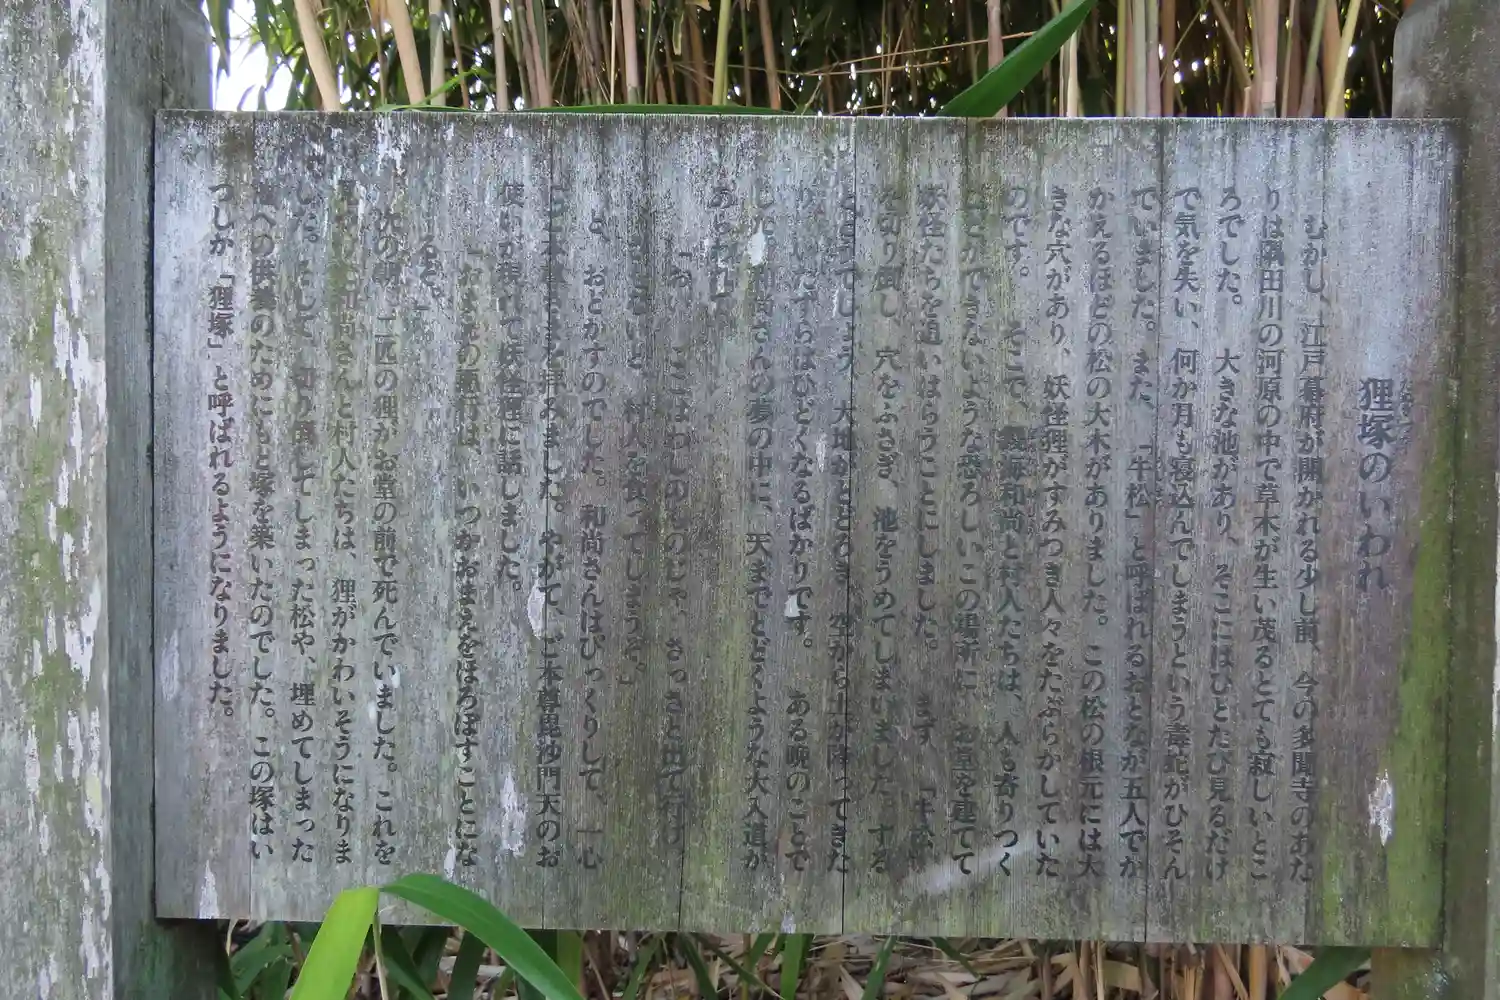 狸塚のいわれ
むかし、江戸幕府が開かれる少し前、今の多聞寺のあた
りは隅田川の河原の中で草木が生い茂るとても寂しいとこ
ろでした。大きな池があり、そこにはひとたび見るだけ
で気を失い、何か月も寝込んでしまうという毒蛇がひそん
でいました。また、「牛松」と呼ばれるおとなが五人でか
かえるほどの松の大木がありました。この松の根元には大
きな穴があり、妖怪狸がすみつき人々をたぶらかしていた
のです。そこで、鑁海和尚と村人たちは、人も寄りつく
ことができないような恐ろしいこの場所に、お堂を建てて
妖怪たちを追いはらうことにしました。まず、「牛松」
を切り倒し、穴をふさぎ、池をうめてしまいました。する
とどうでしょう、大地がとどろき、空から土が降ってきた
り、いたずらはひどくなるばかりです。ある晩のことで
した。和尚さんの夢の中に、天までとどくような大入道が
あらわれて、
「おい、ここはわしのものじゃ。さっさと出て行け。
さもないと、村人を食ってしまうぞ。」
と、おどかすのでした。和尚さんはびっくりして、一心
にご本尊さまを拝みました。やがて、ご本尊毘沙門天のお
使いが現れて妖怪狸に話しました。
「おまえの悪行は、いつかおまえをほろぼすことにな
るぞ。」
次の朝、二匹の狸がお堂の前で死んでいました。これを
見や 和尚さんと村人たちは、狸がかわいそうになりま
した。そして、切り倒してしまった松や、埋めてしまった
池への供養のためにもと塚を築いたのでした。この塚はい
つしか「狸塚」と呼ばれるようになりました。